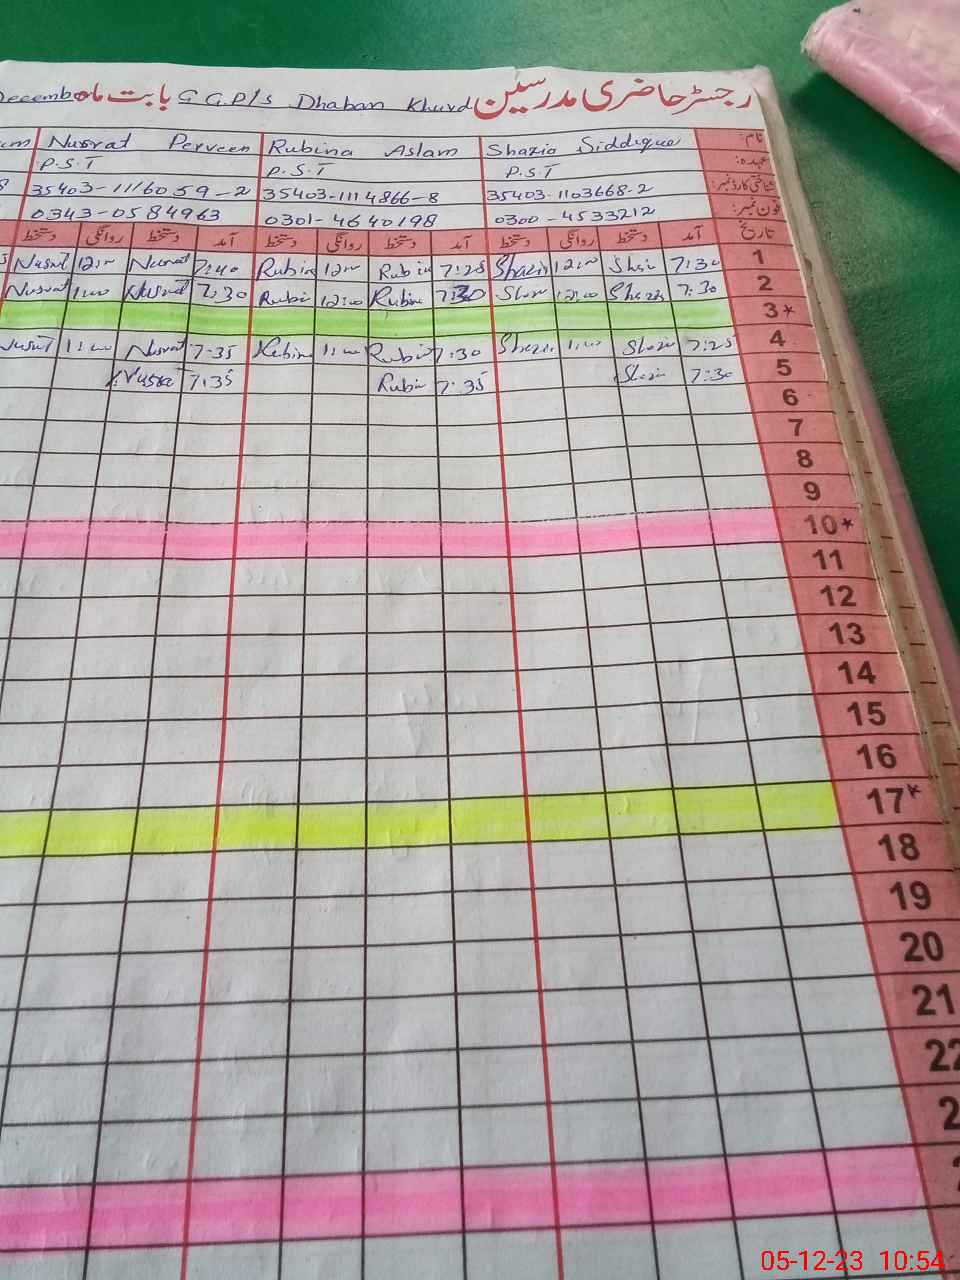 رجسٹر حاضری مدرسین G.G.P/S Dhaban Khurd بابت ماہ December
نام: Shazia Siddique Rubina Aslam Nusrat Perveen
عہدہ: P.S.T P.S.T P.S.T
شناختی کارڈ نمبر: 35403-1103668-2 35403-1114866-8 35403-1116059-2
فون نمبر: 0300-4533212 0301-4640198 0343-0584963
تاریخ آمد دستخط روانگی دستخط آمد دستخط روانگی دستخط آمد دستخط روانگی دستخط
1 7:30 12:00 Shazia 7:25 Rubina 12:00 Rubina 7:40 Nusrat 12:00 Nusrat
2 7:30 Shazia 12:00 7:30 Rubina 12:00 Rubi 7:30 Nusrat 1:00 Nusrat
3*
4 7:25 Shazia 1:00 Shazia 7:30 Rubina 1:00 Rubina 7:35 Nusrat 1:00 Nusrat
5 7:30 Shazia 7:35 Rubin 7:35 Nusrat
6
7
8
9
10*
11
12
13
14
15
16
17*
18
19
20
21
22
2
2
05-12-23 10:54